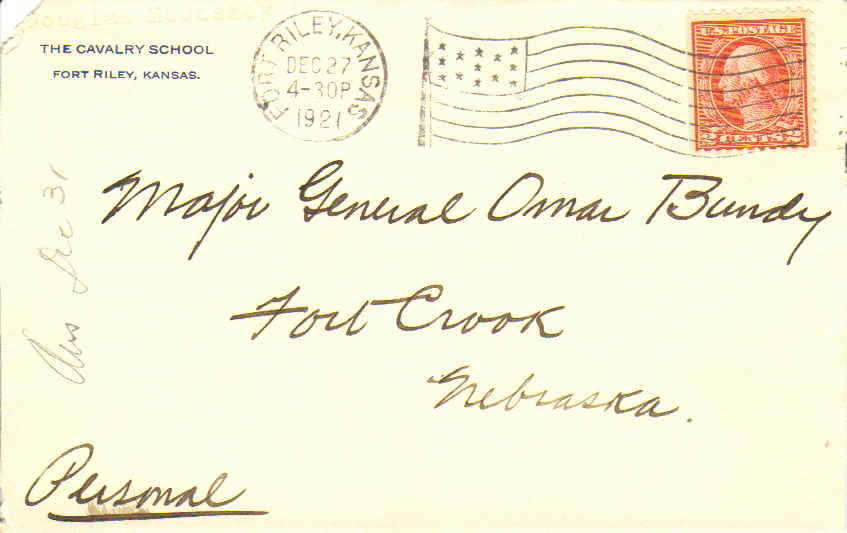 Douglas McCaskey
THE CAVALRY SCHOOL
FORT RILEY, KANSAS.
FORT RILEY, KANSAS
DEC 27
4-30P
1921
U.S. POSTAGE
2 CENTS 2
Ans Dec 31
Major General Omar Bundy
Fort Crook
Nebraska.
Personal